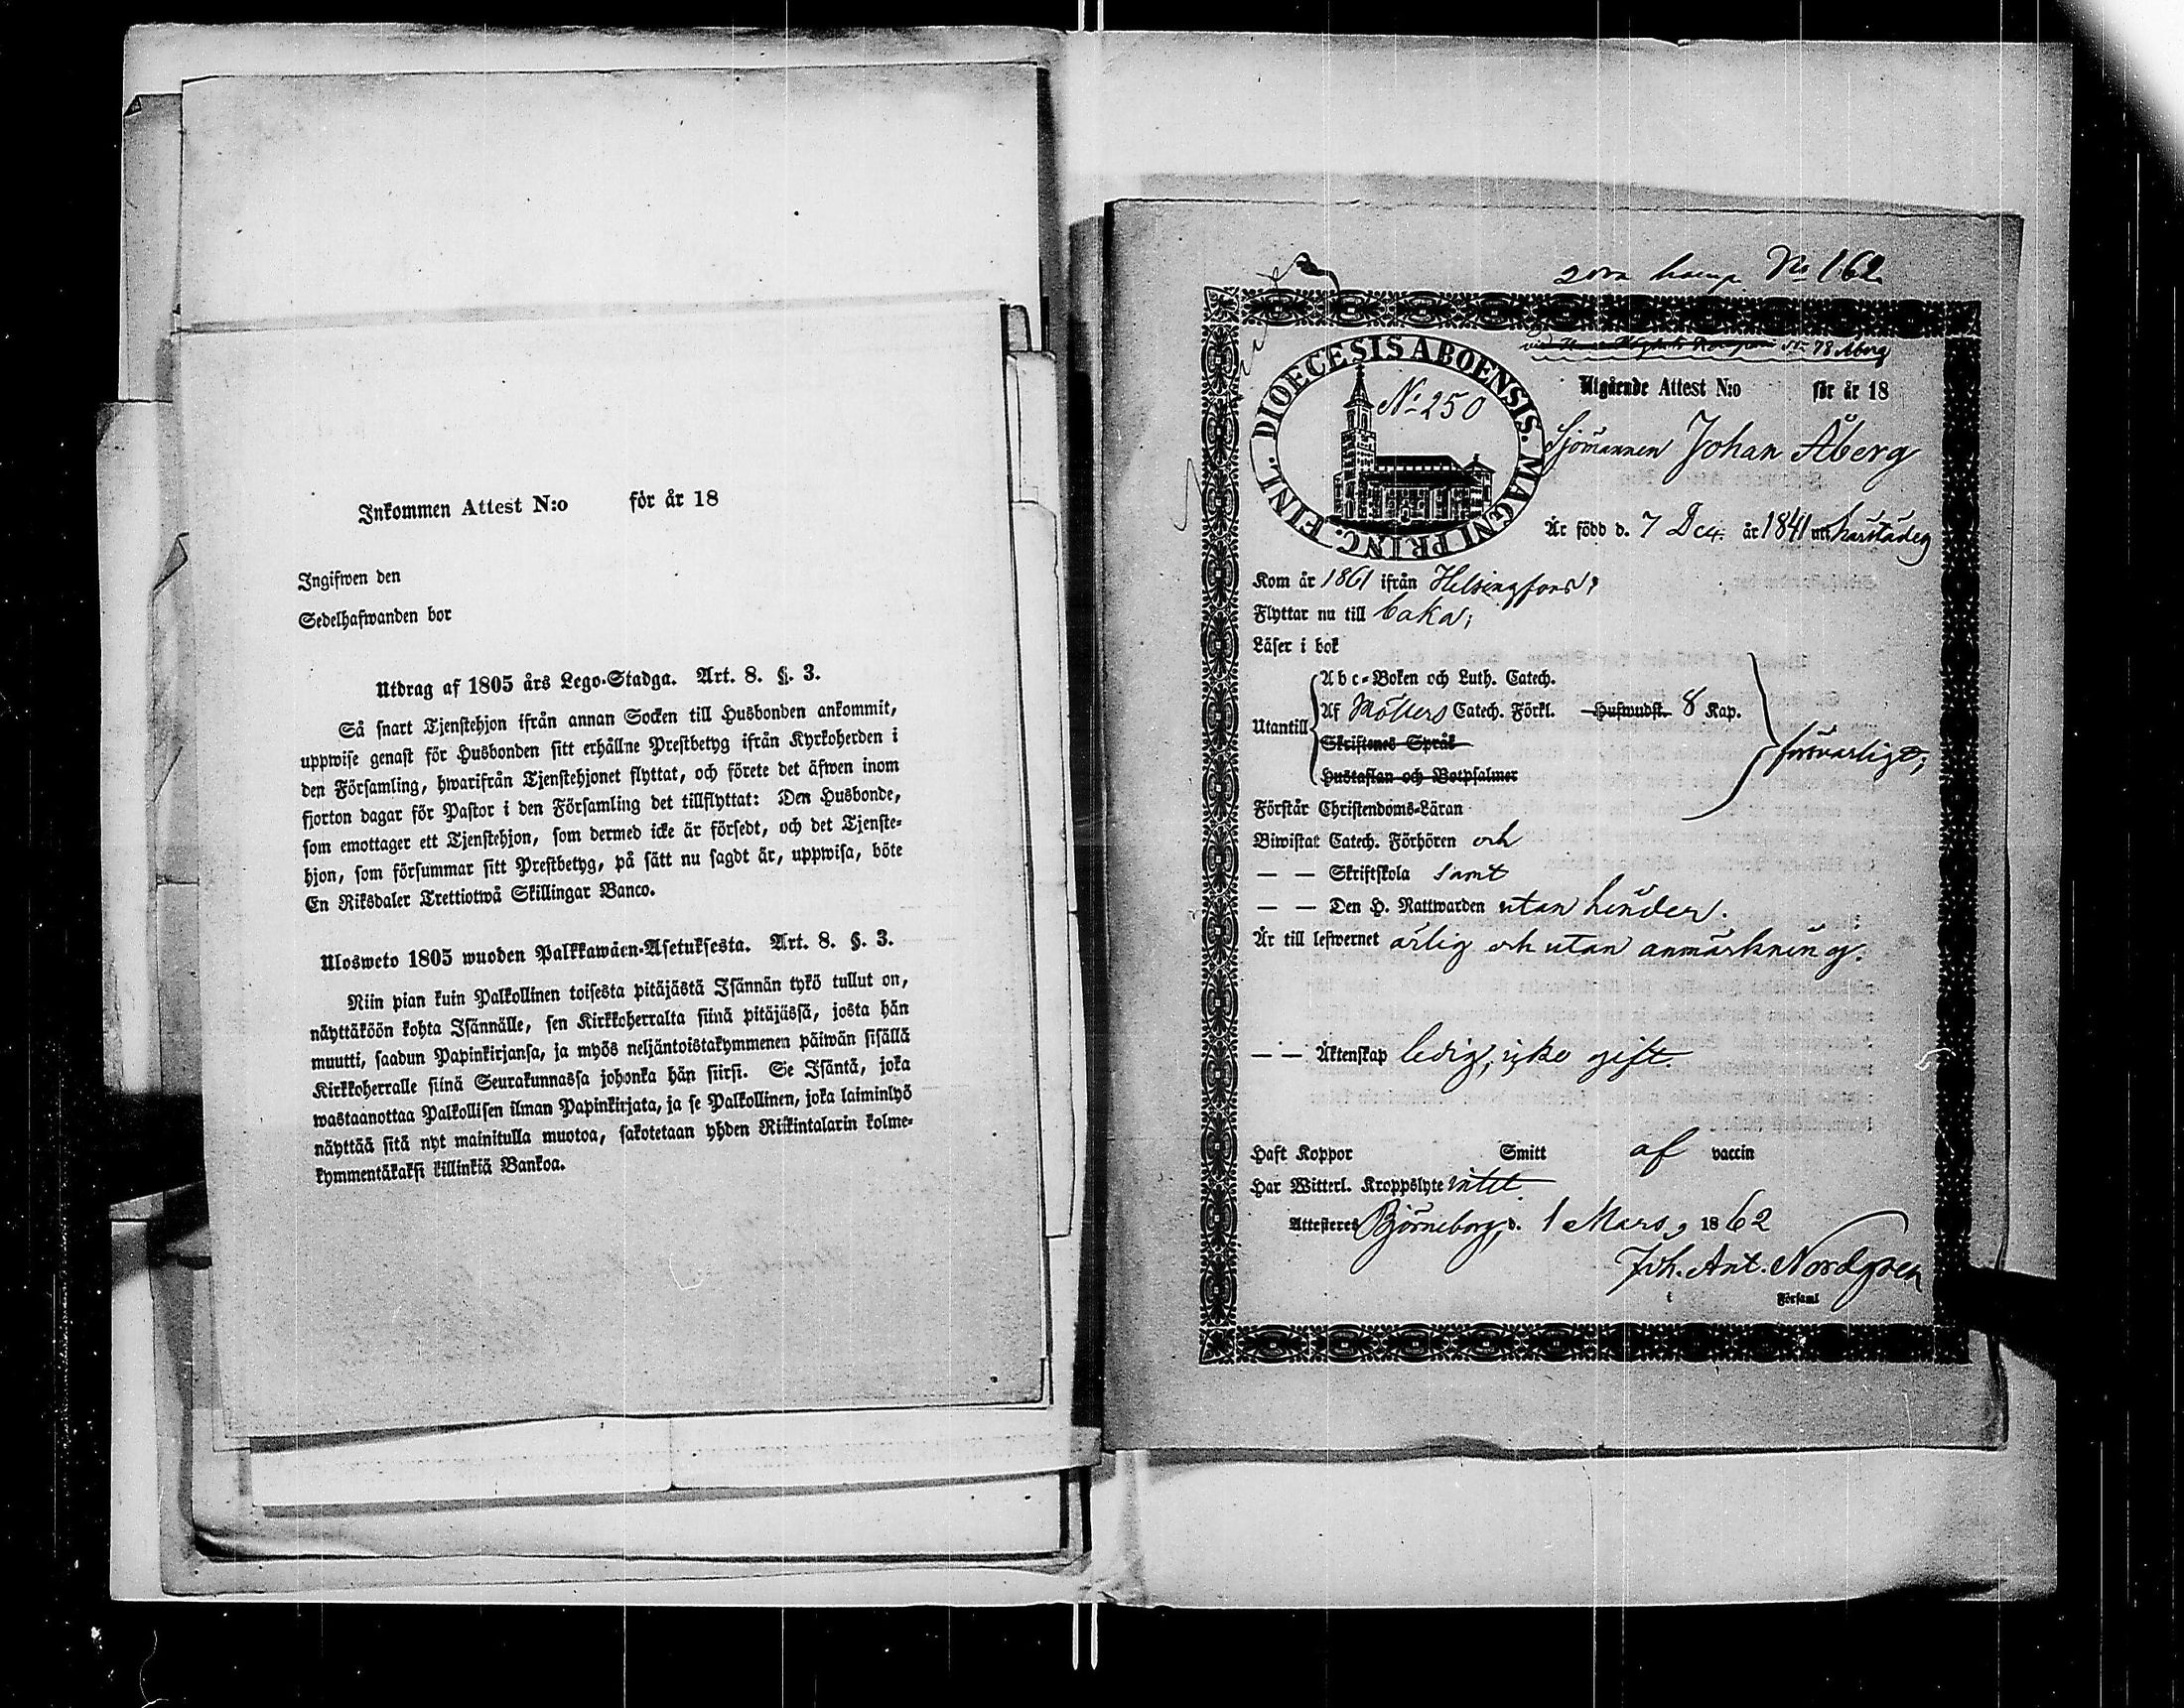 Inkommen Attest N:o för år 18
Ingifwen den
Sedelhafwanden bor
Utdrag af 1805 års Lego-Stadga. Art. 8. §. 3.
Så snart Tjenstehjon ifrån annan Socken till Husbonden ankommit,
uppwise genast för Husbonden sitt erhållne Prestbetyg ifrån Kyrkoherden i
den Församling, hwarifrån Tjenstehjonet flyttat, och förete det äfwen inom
fjorton dagar för Pastor i den Församling det tillflyttat: Den Husbonde,
som emottager ett Tjenstehjon, som dermed icke är försedt, och det Tjenste-
hjon, som försummar sitt Prestbetyg, på sätt nu sagdt är, uppwisa, böte
En Riksdaler Trettiotwå Skillingar Banco.
Ulosweto 1805 wuoden Palkkawäen-Asetuksesta. Art. 8. §. 3.
Niin pian kuin Palkollinen toisesta pitäjästä Isännän tykö tullut on,
näyttäköön kohta Isännälle, sen Kirkkoherralta siinä pitäjässä, josta hän
muutti, saadun Papinkirjansa, ja myös neljäntoistakymmenen päiwän sisällä
Kirkkoherralle siinä Seurakunnassa johonka hän siirsi. Se Isäntä, joka
wastaanottaa Palkollisen ilman Papinkirjata, ja se Palkollinen, joka laiminlyö
näyttää sitä nyt mainitulla muotoa, sakotetaan yhden Riikintalarin kolme-
kymmentäkaksi killinkiä Bankoa.
2dra komp. No 162
No 78 Åberg
DIOECESIS ABOENSIS. MAGNI PRINC. FINL.
No 250
Utgående Attest N:o för år 18
Sjömannen Johan Åberg
Är född d. 7 Dec. år 1841 uti härstädes
Kom år 1861 ifrån Helsingfors;
Flyttar nu till baka;
Läser i bok
Abc-Boken och Luth. Catech.
Utantill Af Möllers Catech. Förkl. Huswudst. 8 Kap.
Skriftenes Språk
försvarligt;
Hustaflan och Botpsalmer
Förstår Christendoms-Läran
Biwistat Catech. Förhören och
— — Skriftskola samt
— — Den H. Nattwarden utan hinder.
Är till lefwernet ärlig och utan anmärkning.
— — Äktenskap ledig, icke gift.
Haft Koppor Smitt af vaccin
Har Witterl. Kroppslyte intet
Attesteres Björneborg, d. 1 Mars, 1862
Joh. Ant. Nordgren
i Församl